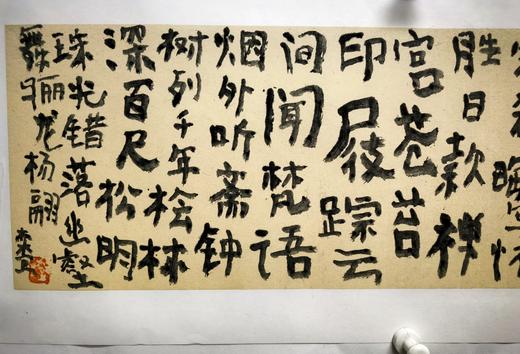 胜日款禅
宫苍苔
印屐踪云
间闻梵语
烟外听斋钟
树列千年桧林
深百尺松明
珠光错落幽壑
舞骊龙杨翮